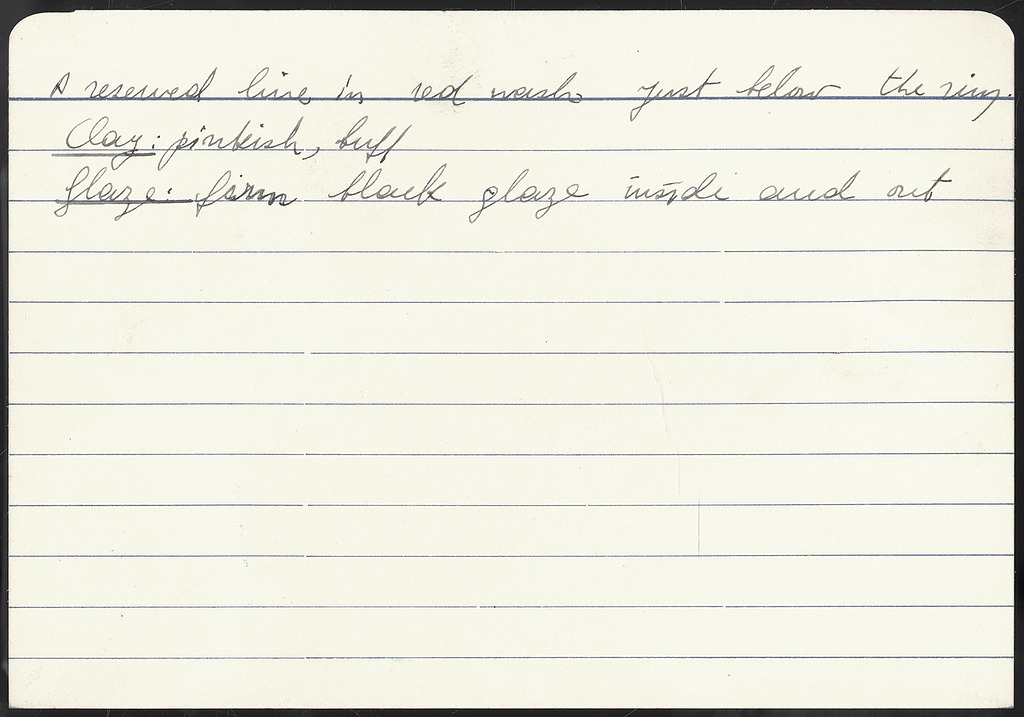 A reserved line in red wash just below the ring.
Clay: pinkish, buff
Glaze: firm black glaze inside and out